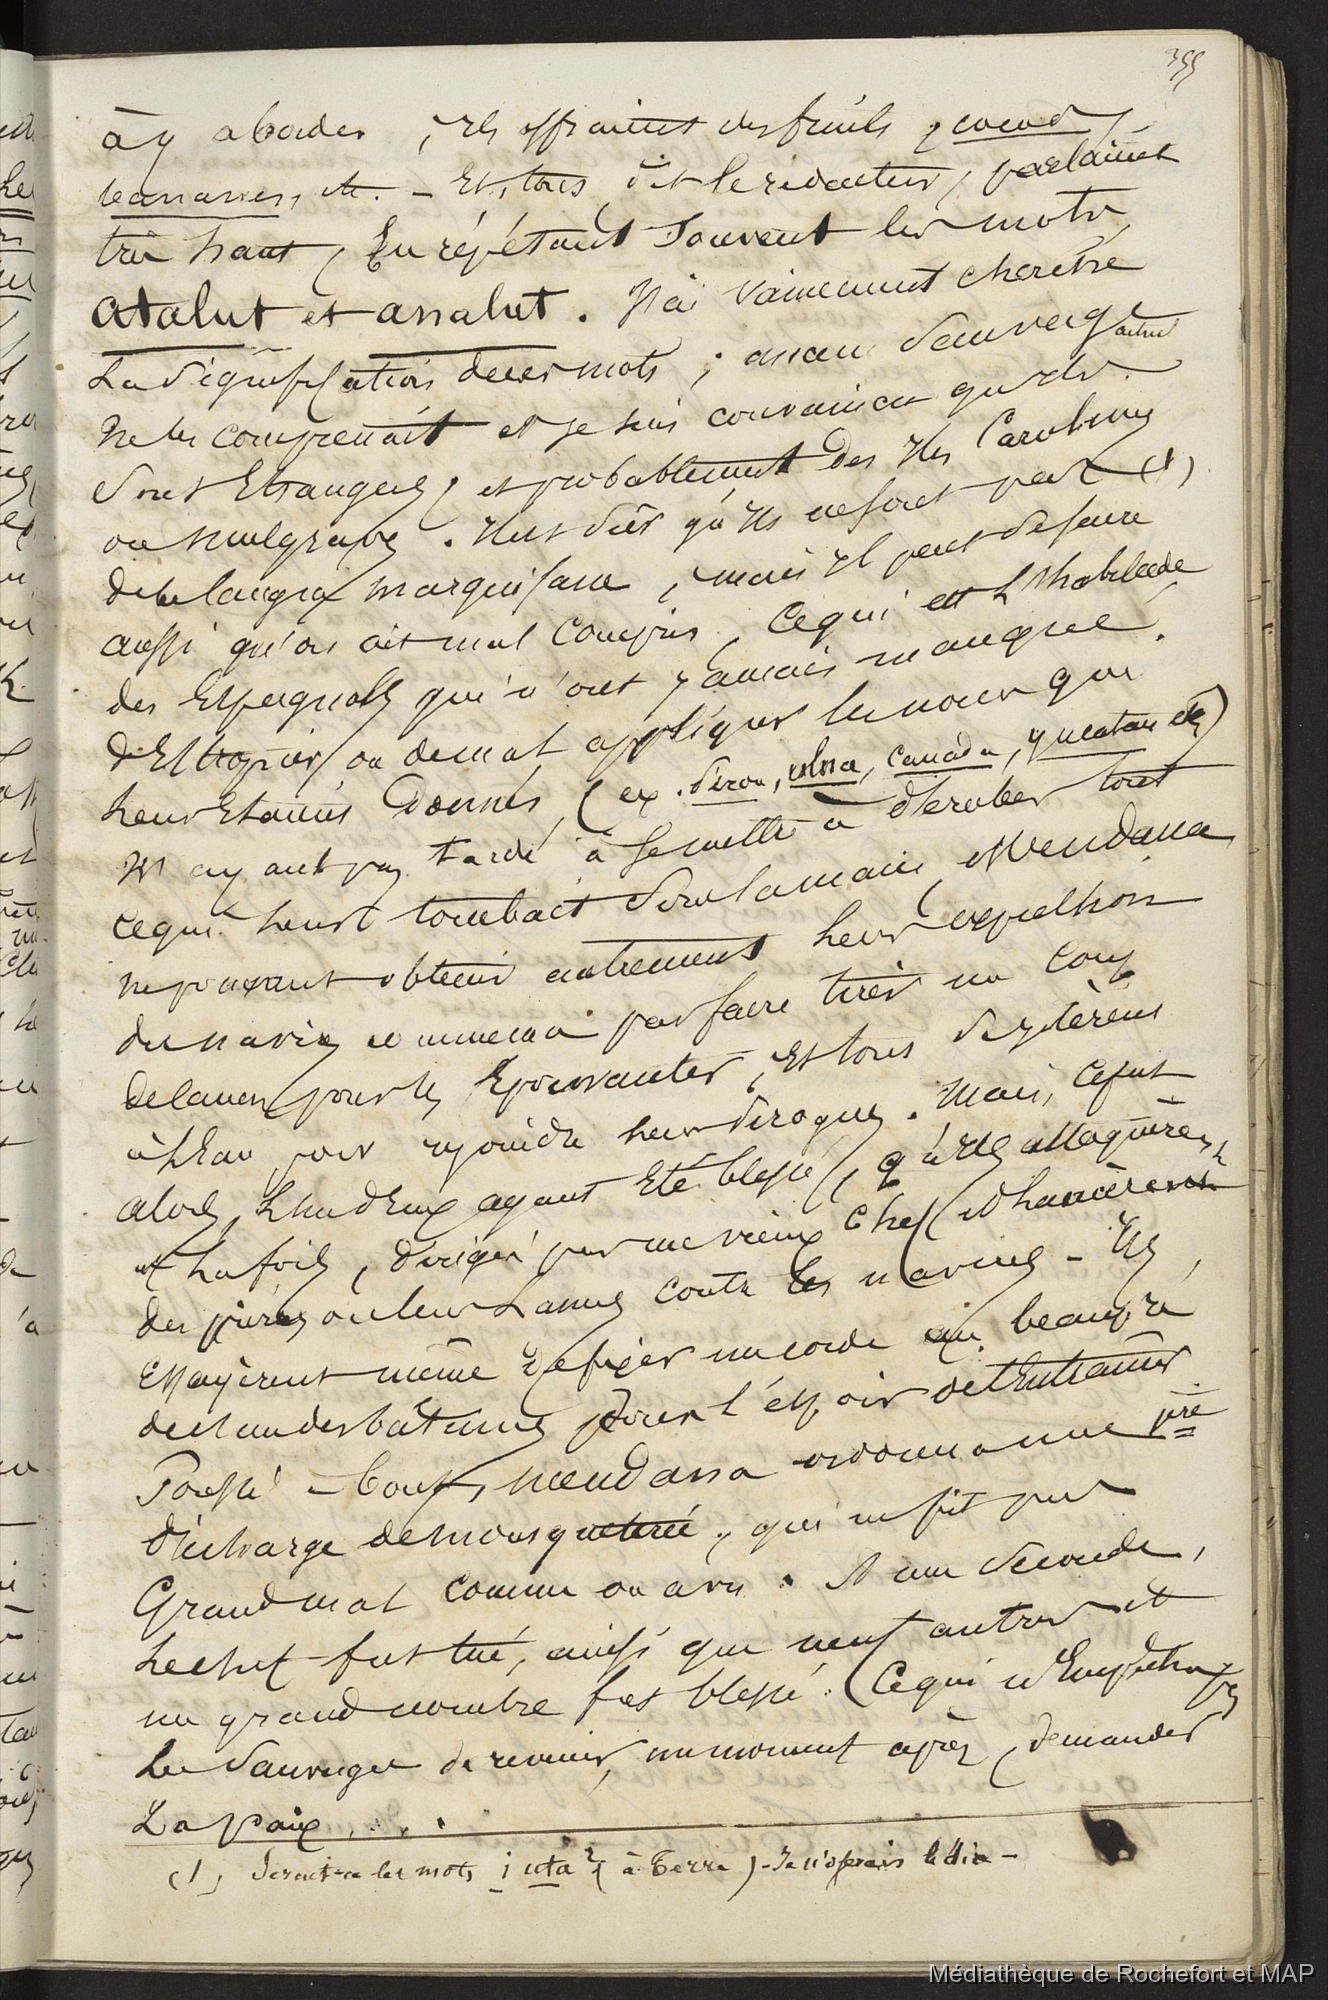 355
à y aborder, ils offraient des fruits, cocos,
bananes, etc. - Et, tous, dit le rédacteur, parlaient
très haut, En répétant Souvent les mots,
atalut et analut. J'ai vainement cherché
La Signification de ces mots ; aucun Sauvage actuel
ne les comprenait et je suis convaincu qu'ils
Sont Etrangers, et probablement Des Iles Carolines
ou mulgraves. Il est sûr qu'ils ne sont pas (1)
de la langue marquisane, mais il peut se faire
aussi qu'on ait mal compris, Ce qui est L'habitude
des Espagnols qui n'ont jamais manqué
d'Estropier, ou de mal appliquer les noms qui
Leur Etaient Donnés, (ex. Pérou, Canada, yucatan etc)
N'ayant pas tardé à se mettre à dérober tout
ce qui leur tombait Sous la main, Mendana
ne pouvant obtenir autrement leur expulsion
du navire commença par faire tirer un Coup
de canon pour les Epouvanter, Et tous Se jetèrent
à L'Eau pour rejoindre leurs pirogues. Mais, ce fut
alors, L'un d'Eux ayant Eté blessé, qu'ils attaquèrent
à La fois, dirigés par un vieux Chef, et lancèrent
des pierres ou leurs Lances contre les navires - Ils
Essayèrent même De fixer une corde au beaupré
de l'un des bâtimens dans l'espoir de l'Entrainer.
Poussé à bout, mendana ordonna une 1ère
décharge de mousqueterie, qui ne fit pas
Grand mal comme on a vu. A une Seconde,
Le chef fut tué, ainsi que neuf autres et
un grand nombre fut blessé. Ce qui n'Empêcha pas
Les Sauvages de revenir, un moment après, demander
La paix....
(1) Serait-ce les mots i uta ? (à Terre) - Je n'oserais le dire -
Médiathèque de Rochefort et MAP